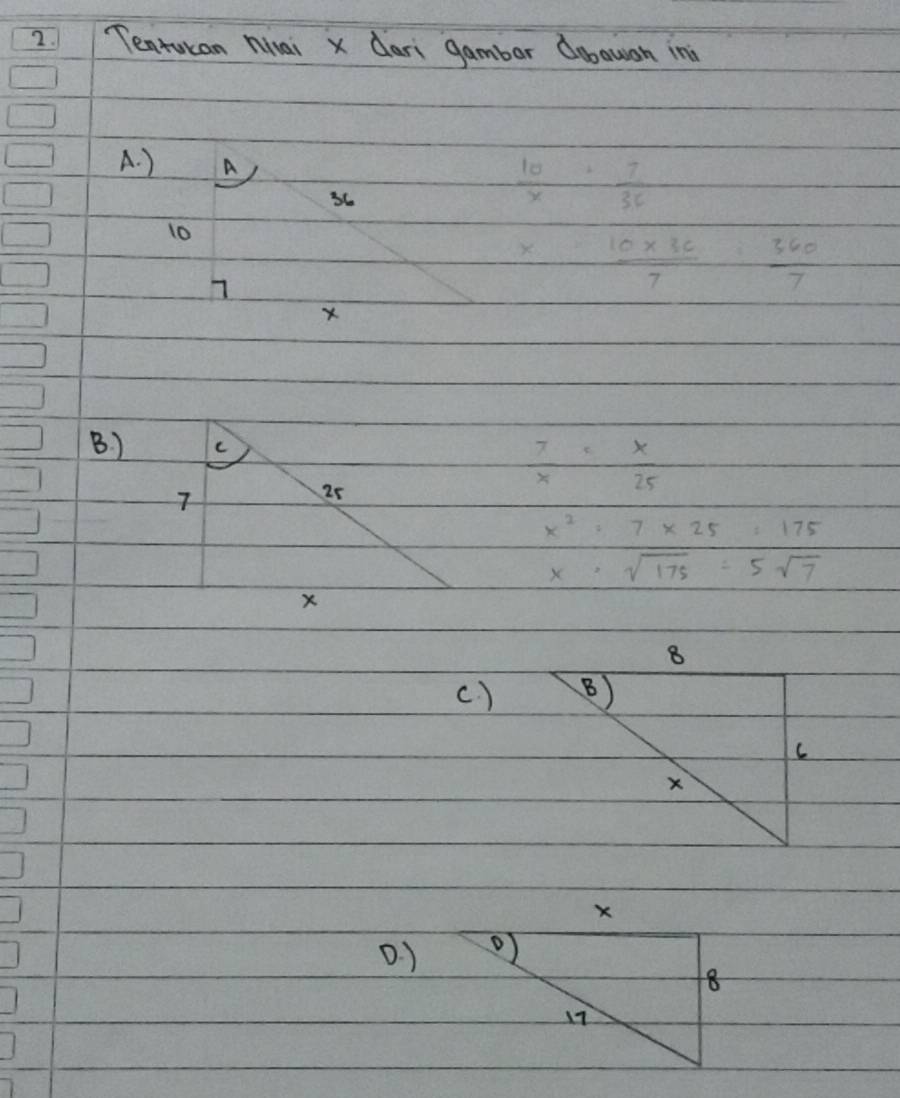 2. Tentukan Nilai x dari gambar dibawah ini
A.)
A
36
10
x
10/x = 7/36
x = 10 x 36/7 = 360/7
B.)
C
7
25
x
7/x = x/25
x² = 7 x 25 = 175
x = √175 = 5√7
C.)
8
B
6
x
D.)
x
D
8
17